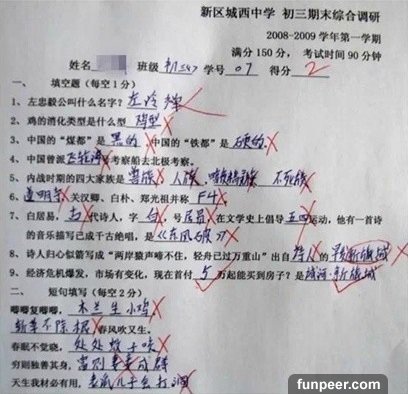 新区城西中学 初三期末综合调研
2008-2009学年第一学期
满分150分， 考试时间90分钟
姓名 班级 初三 学号 07 得分 2
一、 填空题（每空1分）
1、左忠毅公叫什么名字？左冷禅
2、鸡的消化类型是什么型 阵型
3、中国的“煤都”是 黑的 中国的“铁都”是 硬的
4、中国曾派 飞轮海 考察船去北极考察。
5、内战时期的四大家族是 兽族 人族 暗夜精灵族 不死族
6、道明寺 关汉卿、白朴、郑光祖并称 F4
7、白居易， 代诗人，字 白，号 居易 在文学史上倡导 五四 运动，他有一首诗
的音乐描写已成千古绝唱，是 《东风破》
8、诗人归心似箭写成“两岸猿声啼不住，轻舟已过万重山”出自 诗人 的
9、经济危机爆发，市场有变化，现在首付 5 万起能买到房子？是
二、 短句填写（每空2分）
唧唧复唧唧，木兰生小鸡
斩草不除根 春风吹又生。
春眠不觉晓，处处蚊子咬
穷则独善其身，富则妻妻成群
天生我材必有用，老鼠儿子会打洞
funpeer.com